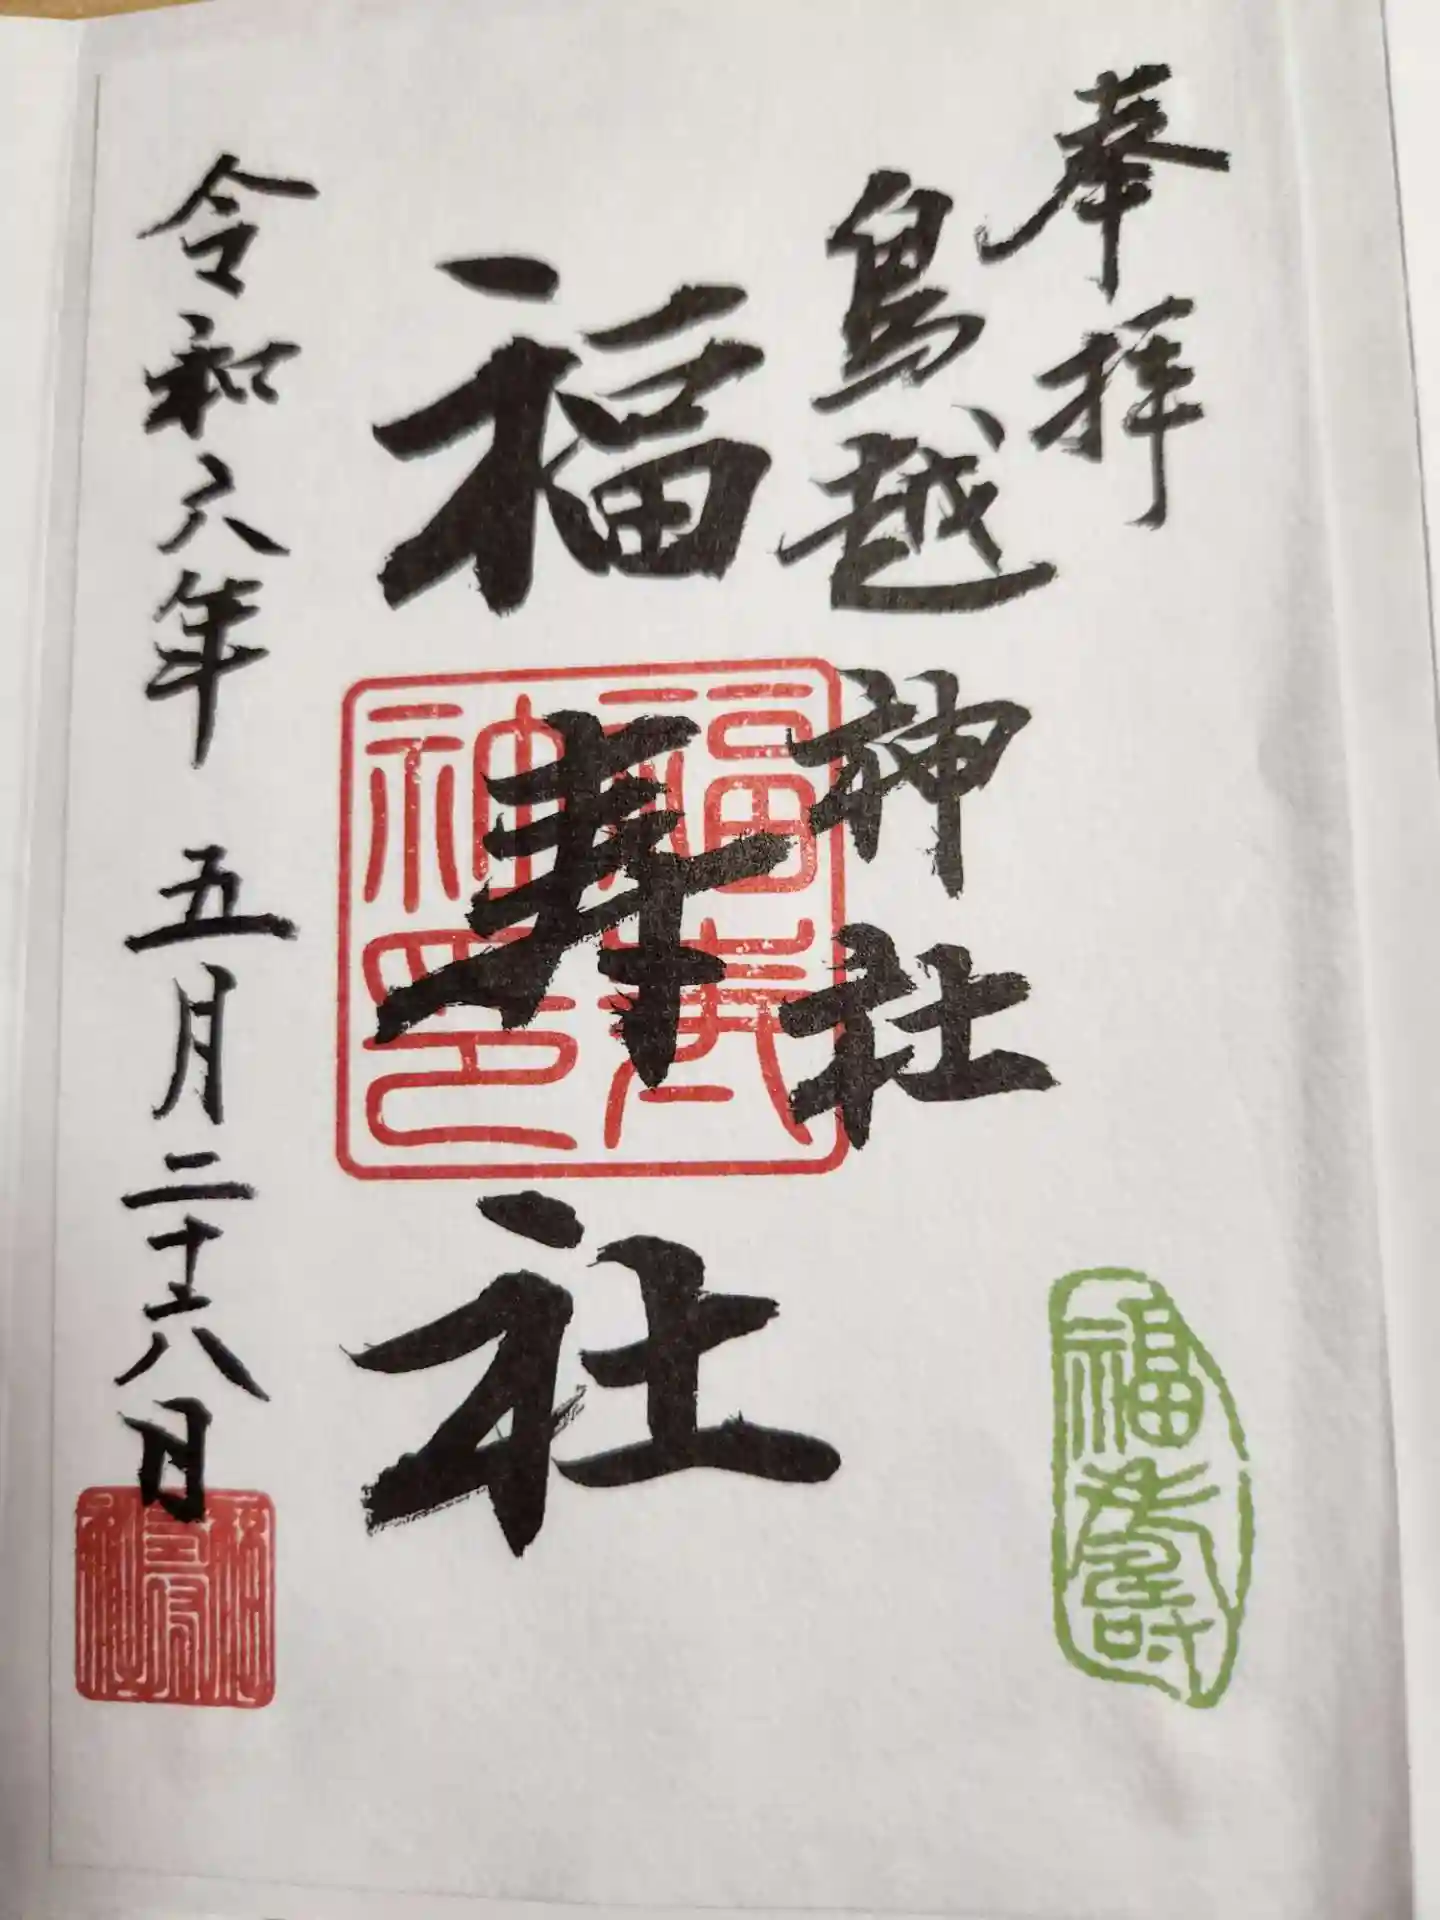 奉拝
鳥越神社
福寿社
福寿神印
令和六年 五月二十六日
福寿